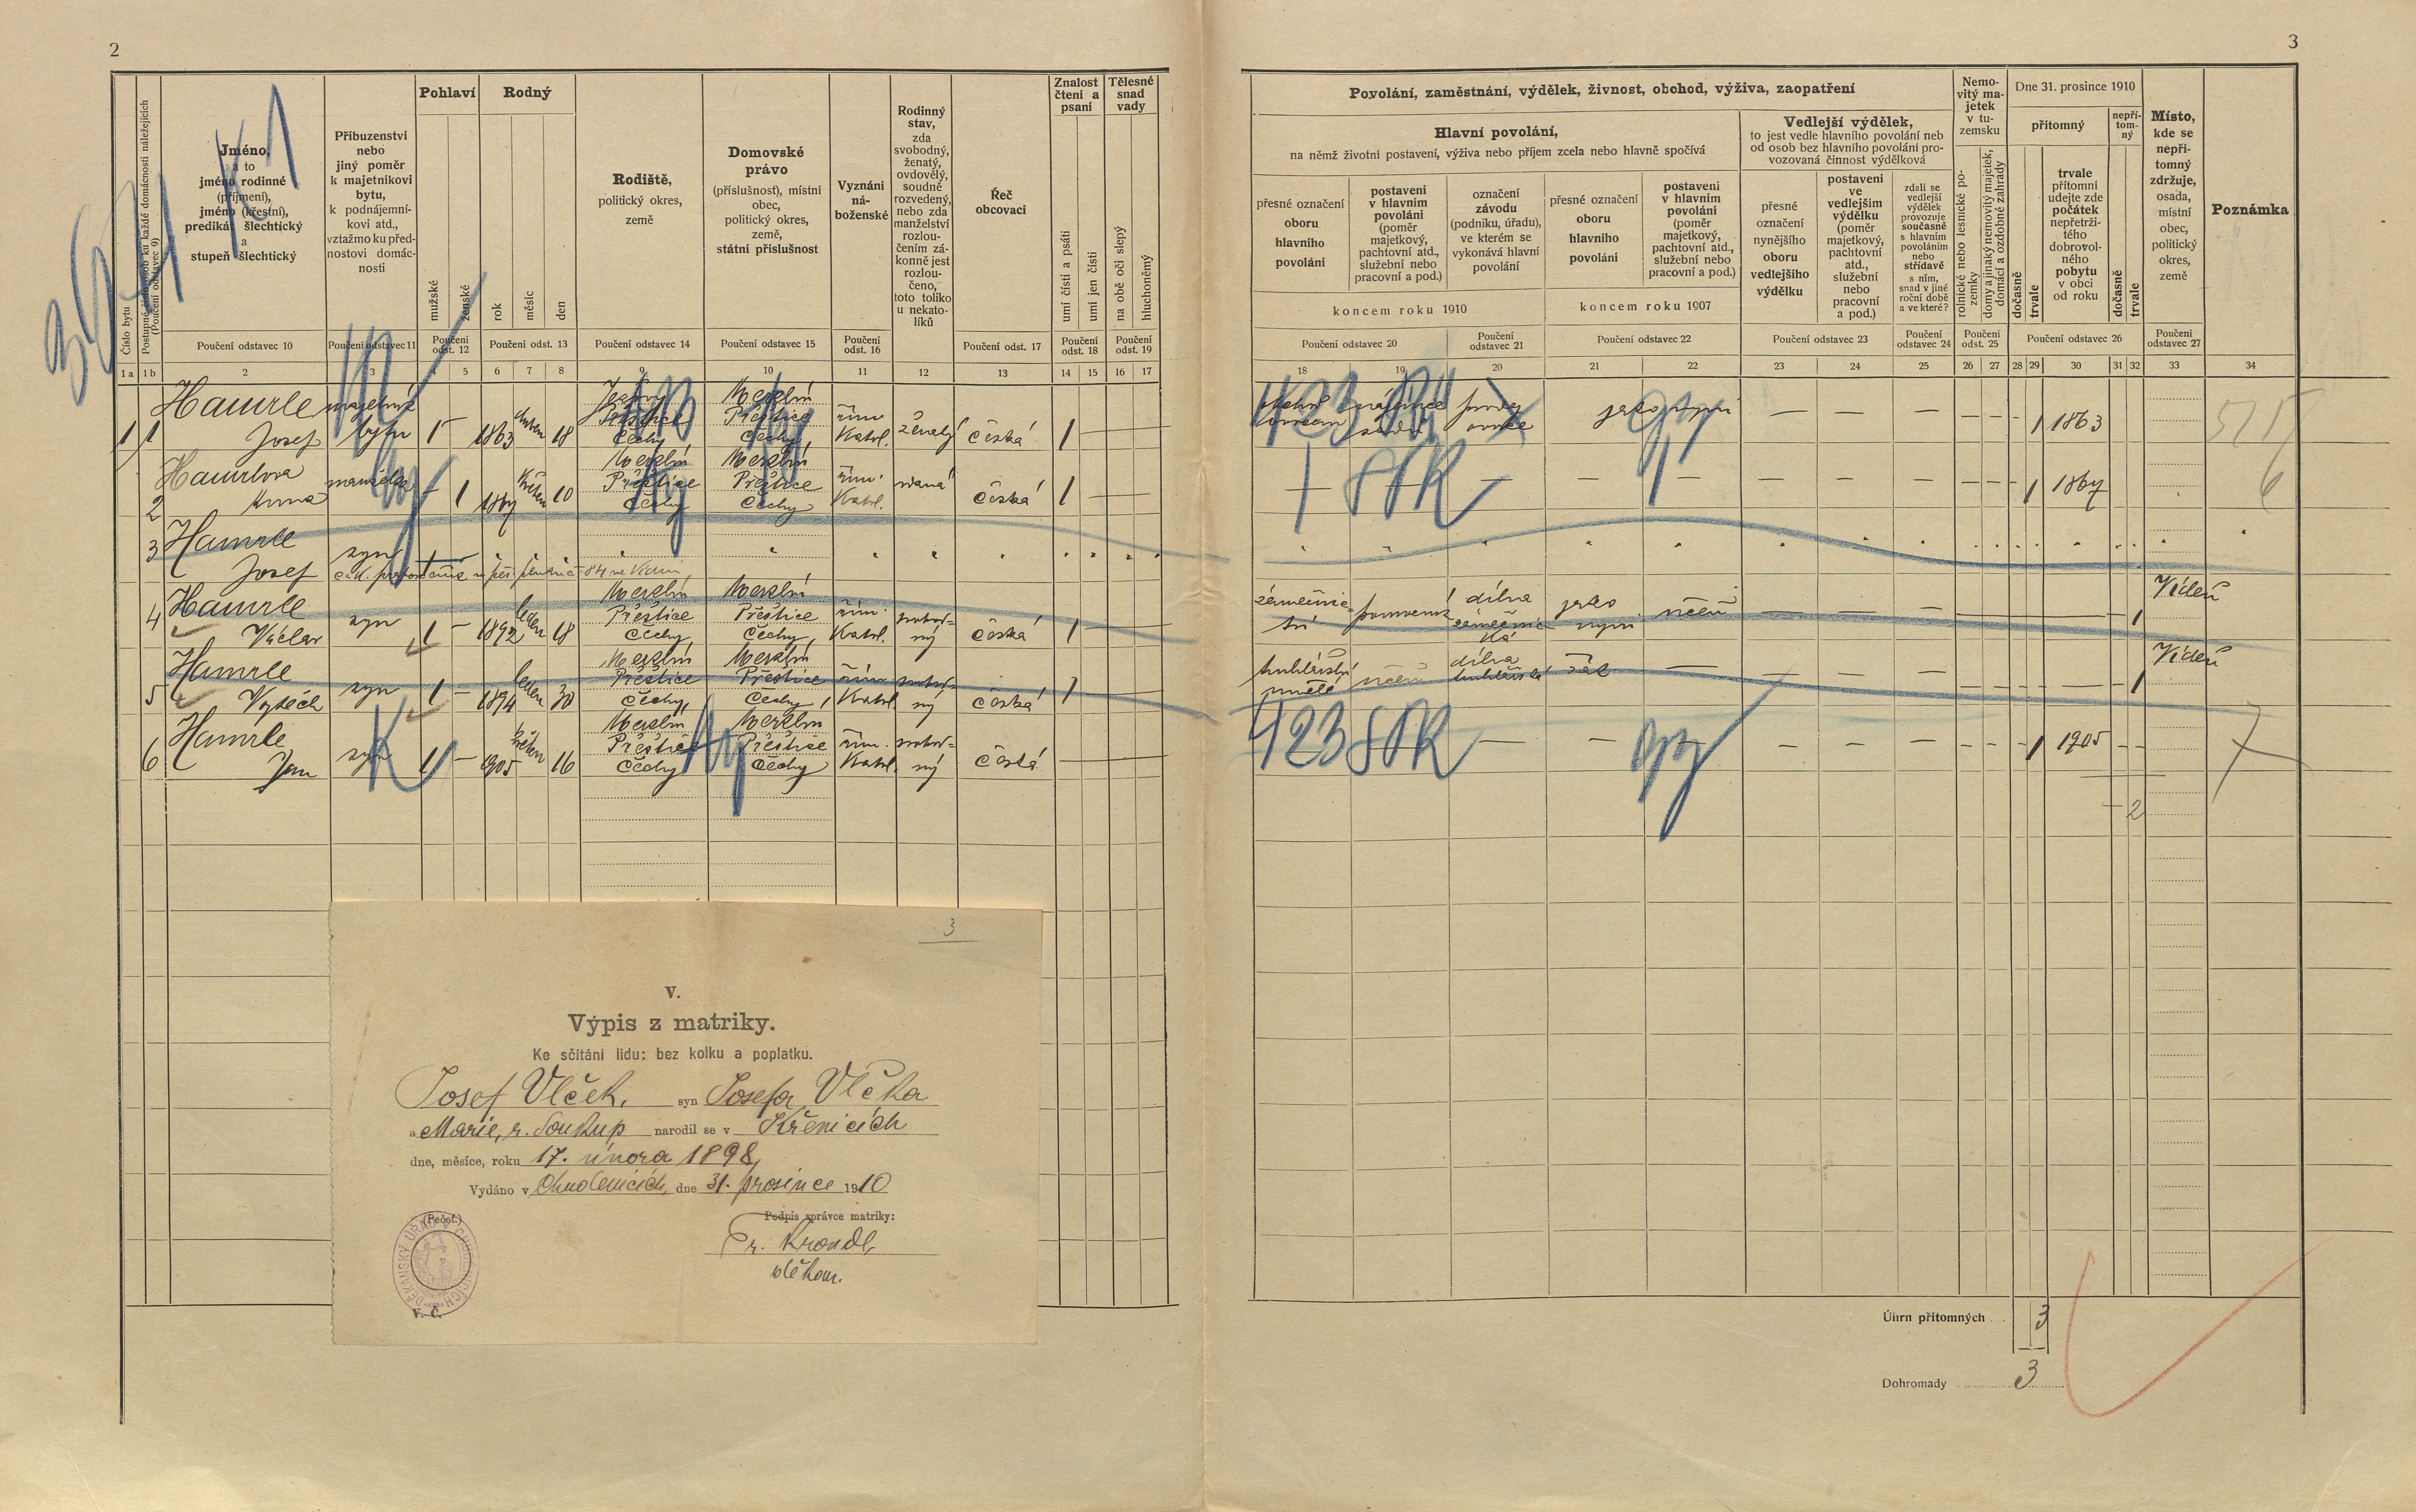 2
3
Jméno,
a to
jméno rodinné
(příjmení),
jméno (křestní),
predikát šlechtický
a
stupeň šlechtický
Příbuzenství
nebo
jiný poměr
k majetníkovi
bytu,
k podnájemní-
kovi atd.,
vztažmo ku před-
nostovi domác-
nosti
Pohlaví
mužské
ženské
Rodný
rok
měsíc
den
Rodiště,
politický okres,
země
Domovské
právo
(příslušnost), místní
obec,
politický okres,
země,
státní příslušnost
Vyznání
ná-
boženské
Rodinný
stav,
zda
svobodný,
ženatý,
ovdovělý,
soudně
rozvedený,
nebo zda
manželství
rozlou-
čením zá-
konně jest
rozlou-
čeno,
toto toliko
u nekato-
líků
Řeč
obcovací
Znalost
čtení a
psaní
umí čísti a psáti
umí jen čísti
Tělesné
snad
vady
na obě oči slepý
hluchoněmý
Číslo bytu
Poučení odstavec 10
Poučení odstavec 11
Poučení odst. 12
Poučení odst. 13
Poučení odstavec 14
Poučení odstavec 15
Poučení odst. 16
Poučení odst. 17
Poučení odst. 18
Poučení odst. 19
1 a 1 b 2 3 4 5 6 7 8 9 10 11 12 13 14 15 16 17
Povolání, zaměstnání, výdělek, živnost, obchod, výživa, zaopatření
Hlavní povolání,
na němž životní postavení, výživa nebo příjem zcela nebo hlavně spočívá
přesné označení
oboru
hlavního
povolání
postavení
v hlavním
povolání
(poměr
majetkový,
pachtovní atd.,
služební nebo
pracovní a pod.)
označení
závodu
(podniku, úřadu),
ve kterém se
vykonává hlavní
povolání
koncem roku 1910
přesné označení
oboru
hlavního
povolání
postavení
v hlavním
povolání
(poměr
majetkový,
pachtovní atd.,
služební nebo
pracovní a pod.)
koncem roku 1907
Vedlejší výdělek,
to jest vedle hlavního povolání neb
od osob bez hlavního povolání pro-
vozovaná činnost výdělková
přesné
označení
nynějšího
oboru
vedlejšího
výdělku
postavení
ve
vedlejším
výdělku
(poměr
majetkový,
pachtovní
atd.,
služební
nebo
pracovní
a pod.)
zdali se
vedlejší
výdělek
provozuje
současně
s hlavním
povoláním
nebo
střídavě
s ním,
snad v jiné
roční době
a ve které?
Nemo-
vitý ma-
jetek
v tu-
zemsku
rolnické nebo lesnické po-
zemky
domy a jinaký nemovitý majetek,
domácí a ozdobné zahrady
Dne 31. prosince 1910
přítomný
dočasně
trvale
trvale
přítomní
udejte zde
počátek
nepřetrži-
tého
dobrovol-
ného
pobytu
v obci
od roku
nepří-
tom-
ný
dočasně
trvale
Místo,
kde se
nepří-
tomný
zdržuje,
osada,
místní
obec,
politický
okres,
země
Poznámka
Poučení odstavec 20
Poučení odstavec 21
Poučení odstavec 22
Poučení odstavec 23
Poučení odstavec 24
Poučení odst. 25
Poučení odstavec 26
Poučení odstavec 27
18 19 20 21 22 23 24 25 26 27 28 29 30 31 32 33 34
1 1 Hamrle Josef majetník bytu 1 1863 18 Přeštice Čechy Merklín Přeštice Čechy řím. Katol. ženatý česká 1
1 1863
2 Hamrlova Anna manželka 1 1867 květen 10 Merklín Přeštice Čechy Merklín Přeštice Čechy řím. Katol. vdaná česká 1
1 1867
3 Hamrle Josef syn
4 Hamrle Václav syn 1 1892 leden 18 Merklín Přeštice Čechy Merklín Přeštice Čechy řím. Katol. svobod-ný česká 1
dílna zámečnic-ká jako nyní učeň 1 Vídeň
5 Hamrle Vojtěch syn 1 1894 leden 30 Merklín Přeštice Čechy Merklín Přeštice Čechy řím. Katol. svobod-ný česká 1
truhlářství umělé učeň dílna truhlářská žák 1 Vídeň
6 Hamrle Jan syn 1 1905 květen 16 Merklín Přeštice Čechy Merklín Přeštice Čechy řím. Katol. svobod-ný česká
1 1905
2
3
V.
Výpis z matriky.
Ke sčítání lidu: bez kolku a poplatku.
Josef Vlček, syn Josefa Vlčka
a Marie, r. Soukup narodil se v Křenicích
dne, měsíce, roku 17. února 1898,
Vydáno v Chudenicích, dne 31. prosince 1910
(Pečeť.)
Podpis správce matriky:
Fr. Krondl,
děkan.
DĚKANSKÝ ÚŘAD V CHUDENICÍCH
V. Č.
Úhrn přítomných 3
Dohromady 3